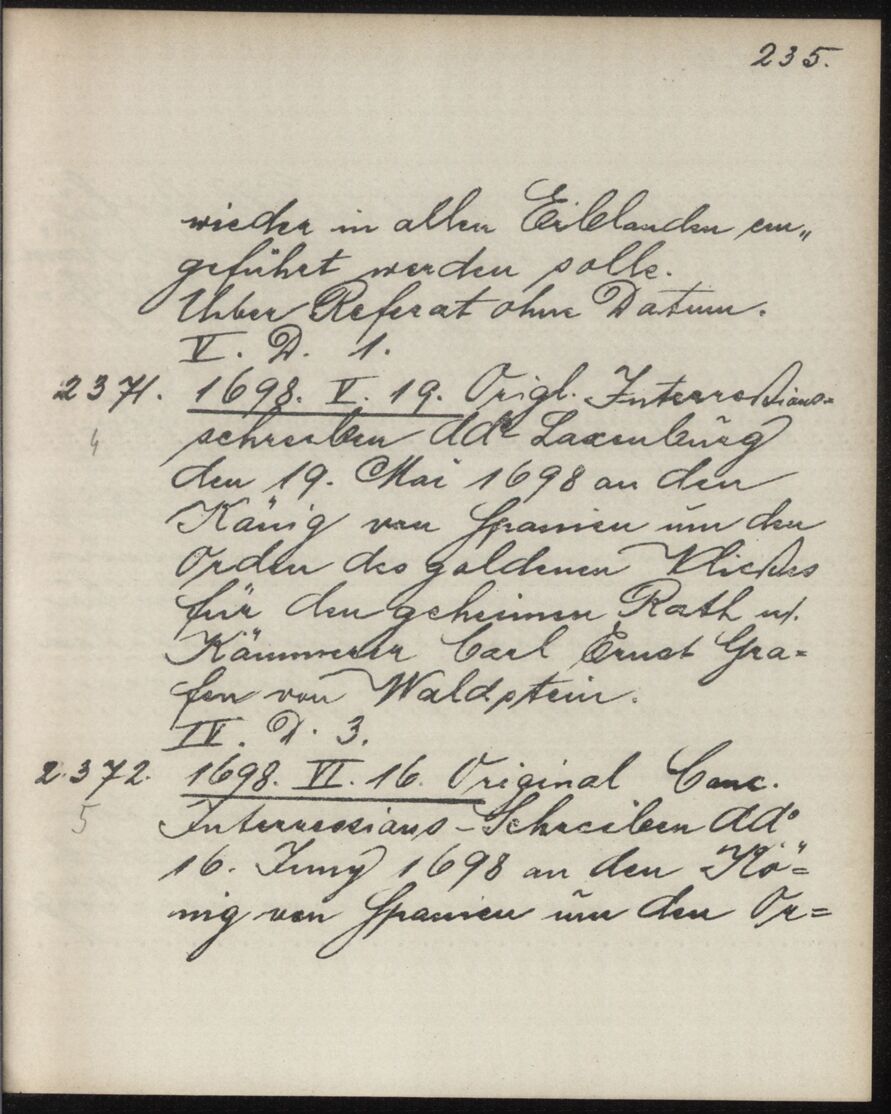 235.
wieder in allen Erblanden ein„
geführt werden solle.
Über Referat ohne Datum.
V. D. 1.
2371. 1698. V. 19. Origl. Interressions=
4 schreiben ddº Laxenburg
den 19. Mai 1698 an den
König von Spanien um den
Orden des goldenen Vließes
für den geheimen Rath u.
Kämmerer Carl Ernst Gra=
fen von Waldstein.
IV. D. 3.
2372. 1698. VI. 16. Original Conc.
5 Interressions-Schreiben ddº
16. Juny 1698 an den Kö=
nig von Spanien um den Or=